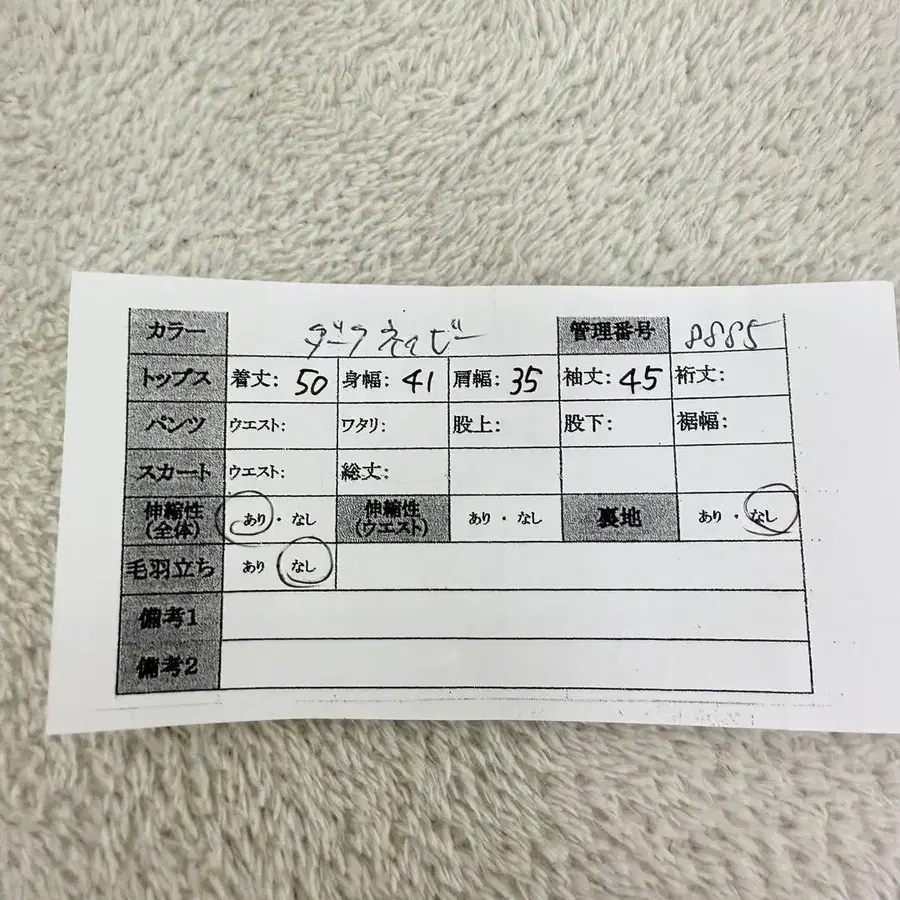 カラー ダークネイビー 管理番号 8885
トップス 着丈: 50 身幅: 41 肩幅: 35 袖丈: 45 裄丈:
パンツ ウエスト: ワタリ: 股上: 股下: 裾幅:
スカート ウエスト: 総丈:
伸縮性(全体) あり・なし 伸縮性(ウエスト) あり・なし 裏地 あり・なし
毛羽立ち あり なし
備考1
備考2